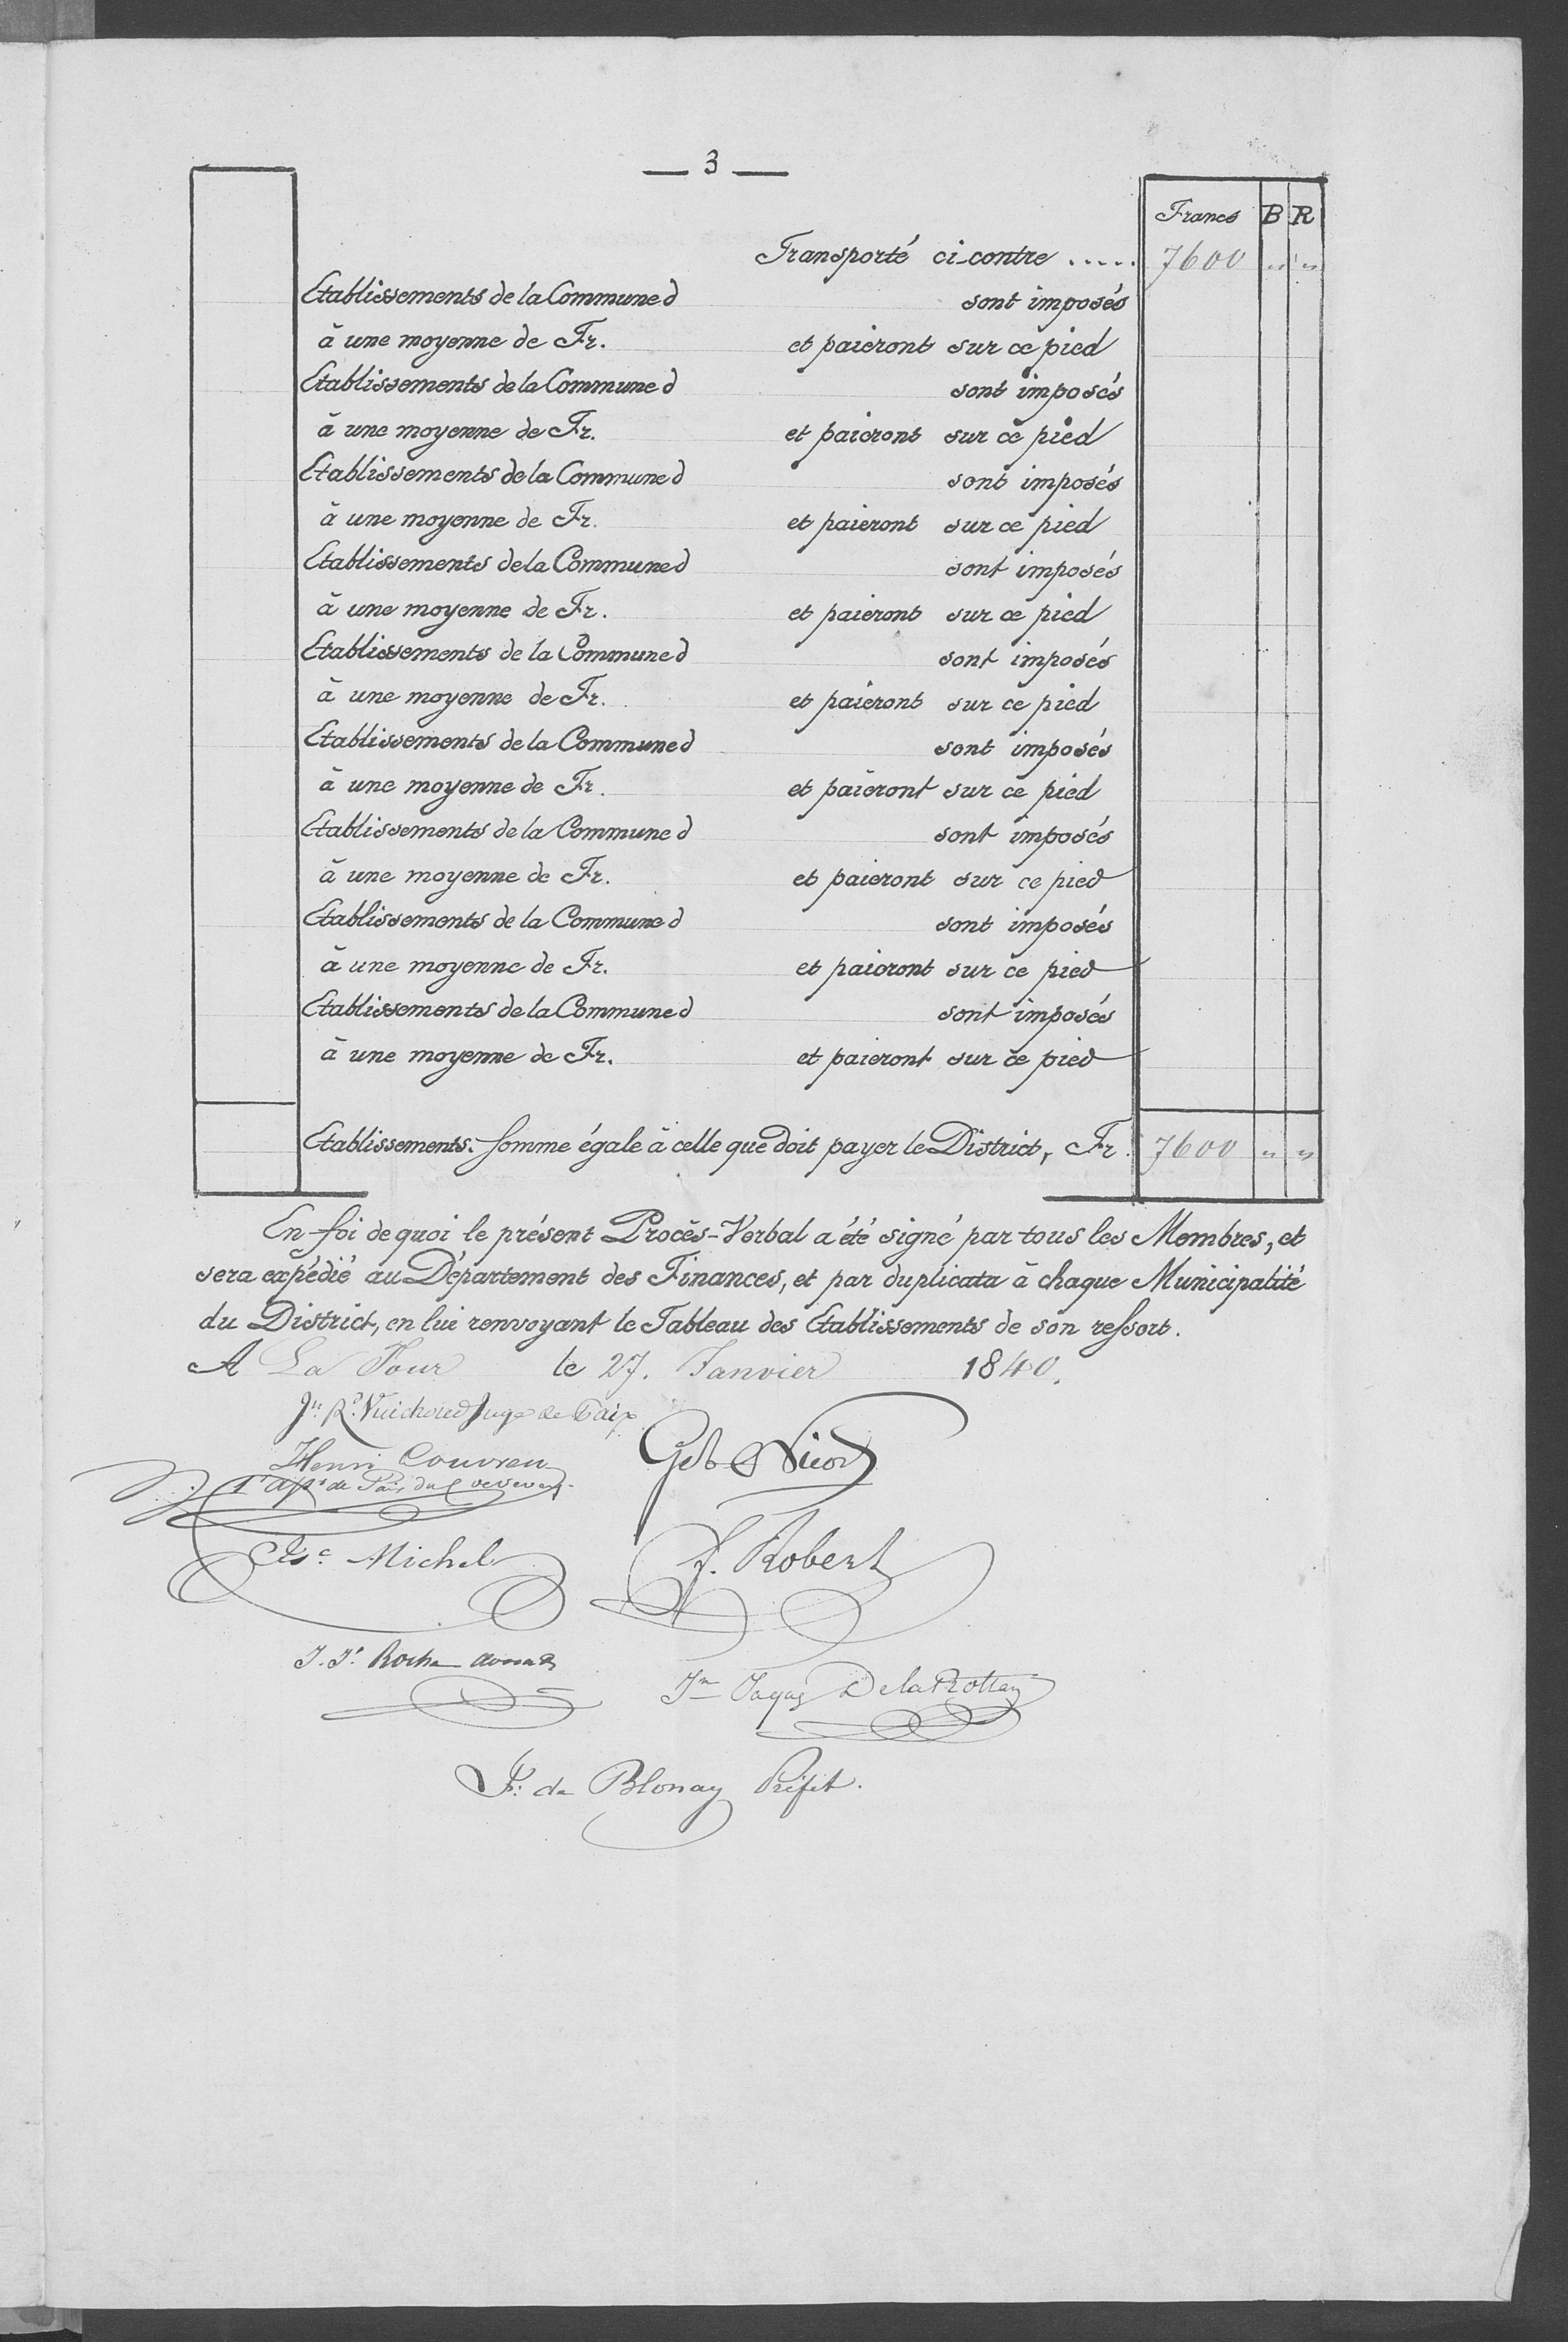 — 3 —
Francs B R
Transporté ci-contre ..... 7600 " "
Etablissements de la Commune d sont imposés
à une moyenne de Fr. et paieront sur ce pied
Etablissements de la Commune d sont imposés
à une moyenne de Fr. et paieront sur ce pied
Etablissements de la Commune d sont imposés
à une moyenne de Fr. et paieront sur ce pied
Etablissements de la Commune d sont imposés
à une moyenne de Fr. et paieront sur ce pied
Etablissements de la Commune d sont imposés
à une moyenne de Fr. et paieront sur ce pied
Etablissements de la Commune d sont imposés
à une moyenne de Fr. et paieront sur ce pied
Etablissements de la Commune d sont imposés
à une moyenne de Fr. et paieront sur ce pied
Etablissements de la Commune d sont imposés
à une moyenne de Fr. et paieront sur ce pied
Etablissements de la Commune d sont imposés
à une moyenne de Fr. et paieront sur ce pied
Etablissements. Somme égale à celle que doit payer le District, Fr. 7600 " "
En foi de quoi le présent Procès-Verbal a été signé par tous les Membres, et
sera expédié au Département des Finances, et par duplicata à chaque Municipalité
du District, en lui renvoyant le Tableau des Etablissements de son ressort.
A La Tour le 27. Janvier 1840.
Vuichoud Juge de Paix
Henri Couvreu
de Paix du
Michel
F. Robert
J. Roche
De la Rottaz
de Blonay Préfet.